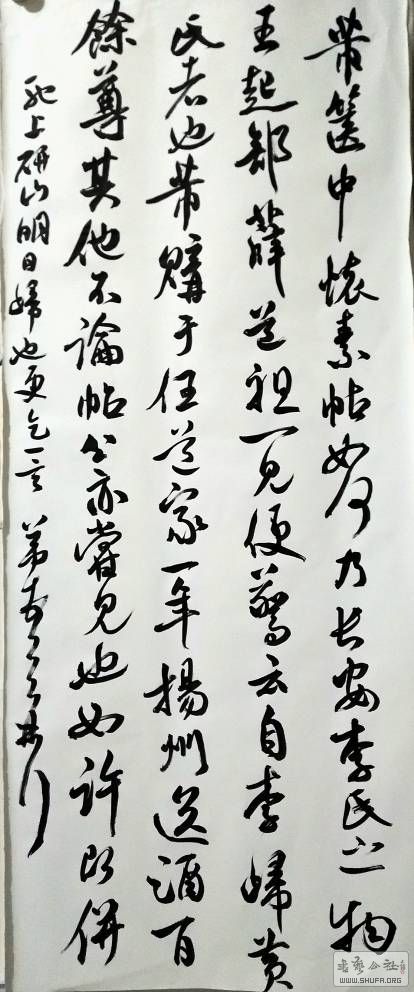 芾篋中懷素帖如何乃長安李氏之物
王起部薛道祖一見便驚云自李歸黃
氏者也芾購于任道家一年揚州送酒百
餘尊其他不論帖公亦嘗見也如許即併
馳上研山明日歸也更乞一言 芾
书艺公社
WWW.SHUFA.ORG